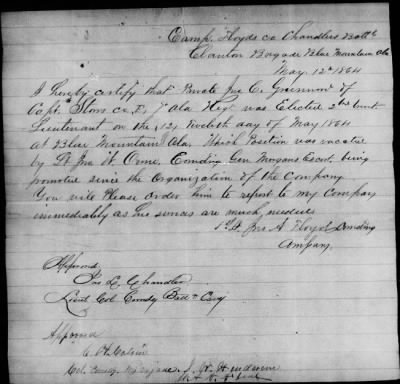 Camp Floyds co Chandlers Batt
Clanton Brigade Blue Mountain Ala
May 12th 1864
I hereby certify that Private Jno C.
Capt Co F. 7" Ala Regt was Elected 2nd
Lieutenant on the (12) Twelvth day of May 1864
at Blue Mountain Ala. Which Position was vacated
by Lt Jno H Comdng Gen Morgans Escort, being
promoted since the Organization of the Company
You will Please Order him to report to my Company
immediately as his services are much needed
1st Lt Jno A Floyd Comding
Company
Approved
Jno L Chandler
Lieut Col Comdg Batt Cavy
Approved
Col Comdg Brigade